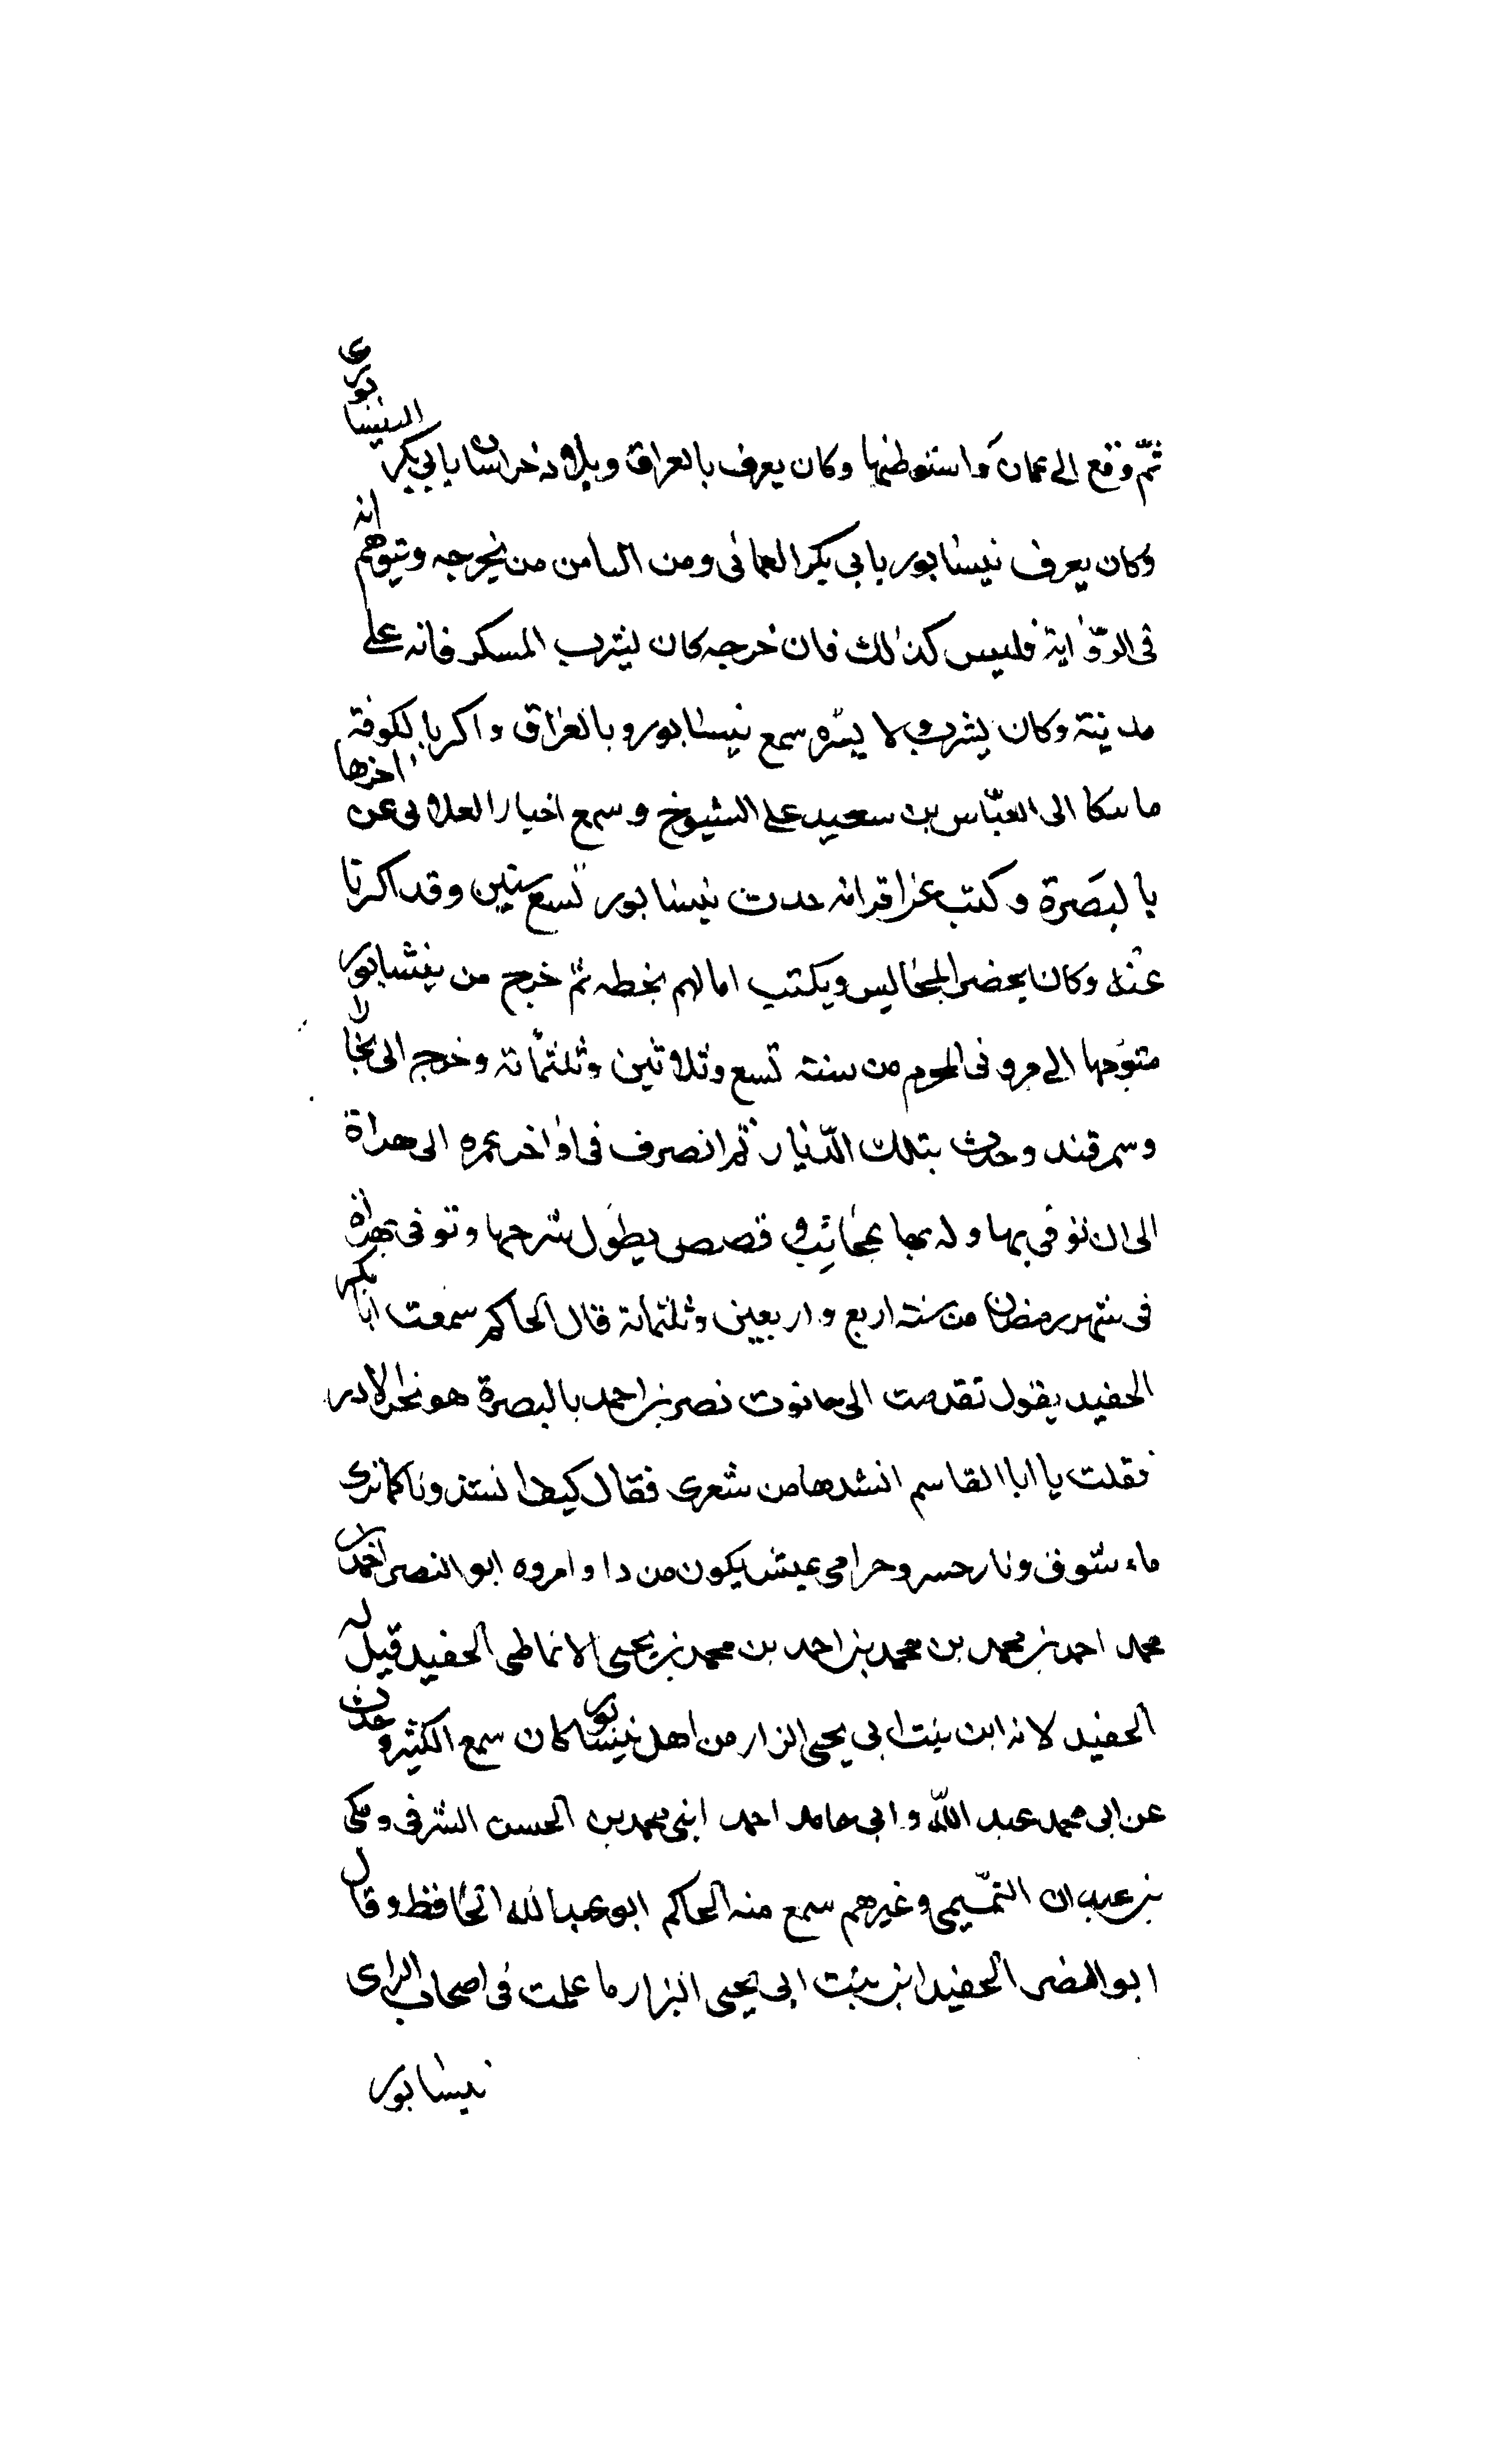 ثمّ وقع الى عمان واستوطنها وكان يعرف بالعراق وبلاد خراسان بابى بكر النيسابورى
وكان يعرف نيسابور بابى بكر العمانى ومن الناس من يجرحه ويتوهم انه
فى الرّواية فليس كذلك فان جرحه كان ليشرب المسكر فانه على
مدينة وكان يشرب ولا يستره سمع نيسابور وبالعراق واكثر بالكوفة
ماسكا الى العبّاس بن سعيد على الشيوخ وسمع اخبار العلابى عن اخرها
بالبصرة وكتب عن اقرانه حدث نيسابور تسع سنين وقد اكثرنا
عنه وكان يحضر المجالس ويكتب امالهم بخطه ثمّ خرج من نيشابور
متوجها الى مرو فى المحرم من سنة تسع وثلاثين وثلثمائة وخرج الى بخارا
وسمرقند وحدث بتلك الدّيار ثم انصرف فى اواخر عمره الى هراة
الى ان توفى بها وله بها عجائب وقصص يطول شرحها وتوفى بهراة
فى شهر رمضان من سنة اربع واربعين وثلثمائة قال الحاكم سمعت ابا بكر
الحفيد يقول تقدمت الى حانوت نصر بن احمد بالبصرة هو
فقلت يا ابا القاسم انشدها من شعرى فقال كيف كما ترى
ماء ونار عيش يكون من دا وامروه ابو النصر احمد بن
محمد احمد بن محمد بن محمد بن احمد بن محمد بن يحيى الانماطى الحفيد قيل له
الحفيد لانه ابن بنت ابى يحيى البزار من اهل نيسابور كان سمع الكثير وحدث
عن ابى محمد عبد اللّه وابى حامد احمد ابنى محمد بن الحسن الشرقى ومكى
بن عبدان التمّيمى وغيرهم سمع منه الحاكم ابو عبد الله الحافظ وقال
ابو النضر الحفيد ابن بنت ابى يحيى البزار ما علمت فى اصحاب الراى
نيسابور